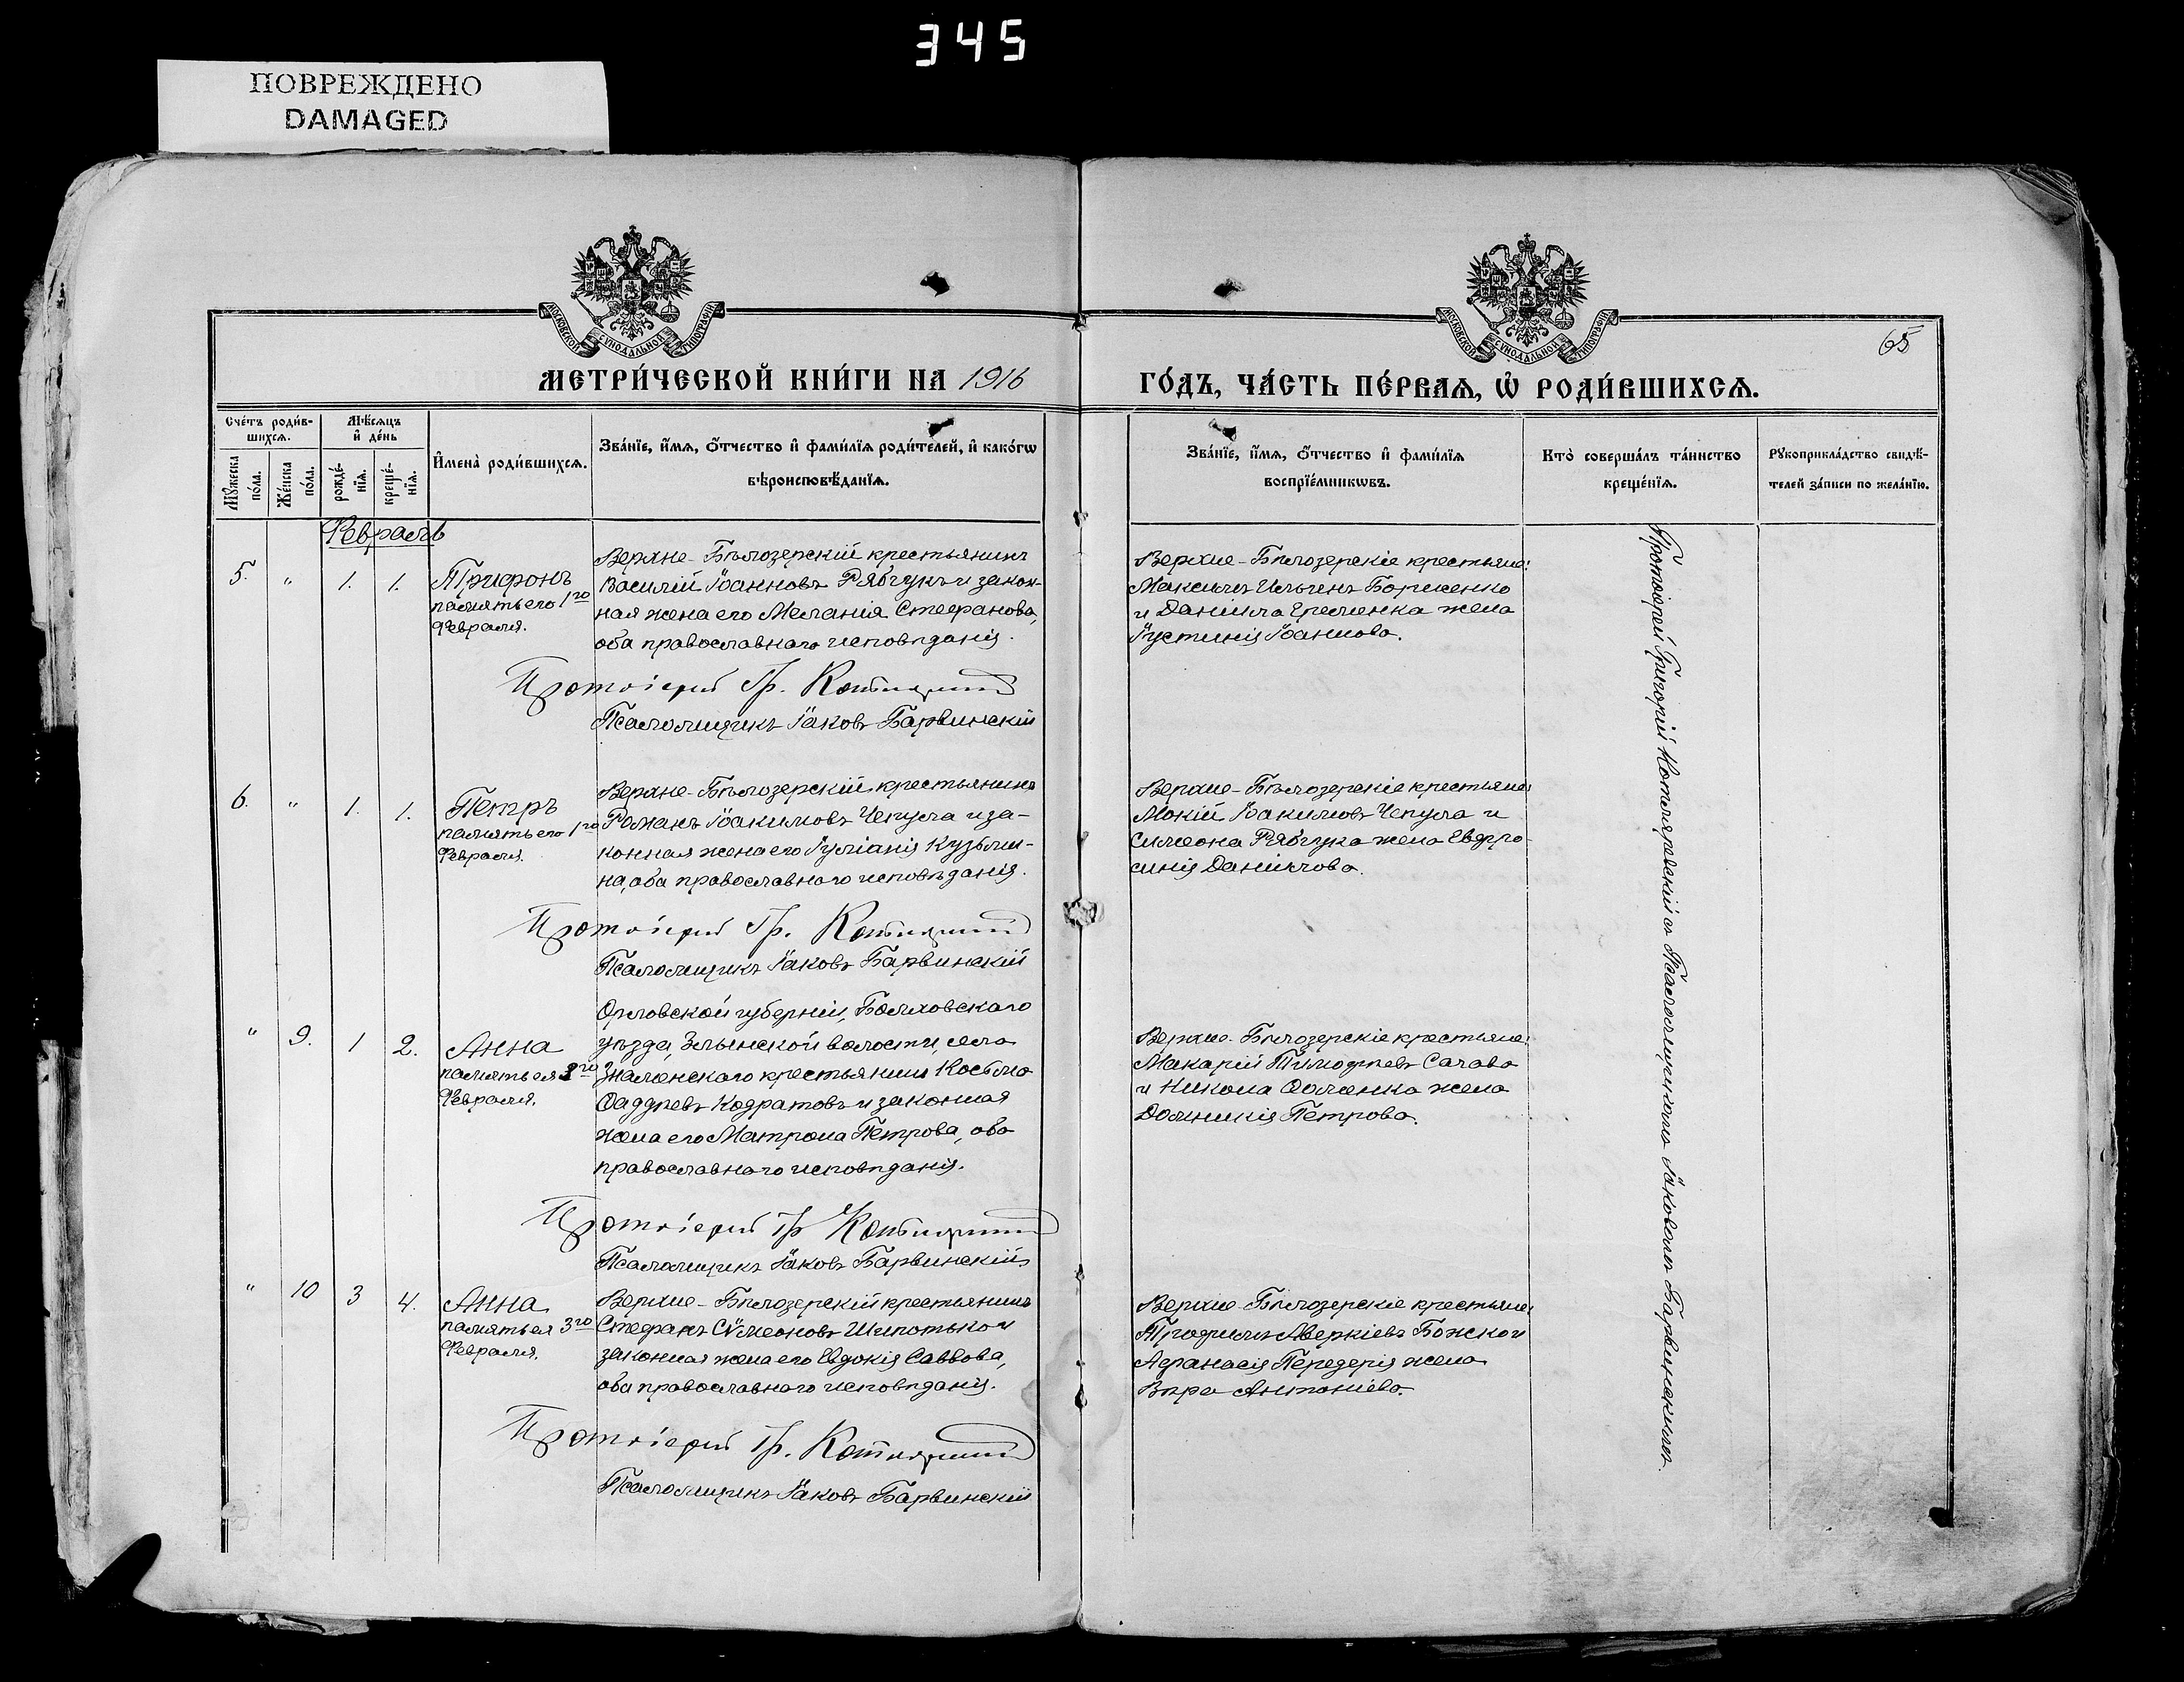 345
ПОВРЕЖДЕНО
DAMAGED
МОСКОВСКОЙ СѴНОДАЛЬНОЙ ТИПОГРАФІИ
МОСКОВСКОЙ СѴНОДАЛЬНОЙ ТИПОГРАФІИ
65
МЕТРИ́ЧЕСКОЙ КНИ́ГИ НА 1916
ГО́ДЪ, ЧА́СТЬ ПЕ́РВАЯ, Ѡ҆ РОДИ́ВШИХСЯ.
Сче́тъ роди́в-
шихся.
Мѣ́сяцъ
и҆ де́нь
Мꙋ́жеска
по́ла.
Же́нска
по́ла.
рожде́-
нїѧ.
креще́-
нїѧ.
И҆мена̀ роди́вшихся.
Зва́нїе, и҆́мѧ, ѻ҆́тчество и҆ фами́лїѧ роди́телей, и҆ како́гѡ
вѣроисповѣ́данїѧ.
Зва́нїе, и҆́мѧ, ѻ҆́тчество и҆ фами́лїѧ
воспрїе́мникѡвъ.
Кто̀ соверша́лъ та́инство
креще́нїѧ.
Рꙋкоприкла́дство свидѣ́-
телей за́писи по жела́нїю.
Февраль
5. " 1. 1. Трифонъ
память его 1го
Февраля.
Верхне-Бѣлозерскій крестьянинъ
Василій Іоанновъ Рябчукъ и закон-
ная жена его Меланія Стефанова,
оба православнаго исповѣданія.
Протоіерей Гр. Котляревскій
Псаломщикъ Іаковъ Барвинскій
Верхне-Бѣлозерскіе крестьяне:
Максимъ Ильинъ Борисенко
и Даниила Гременка жена
Іустинія Іоаннова.
6. " 1. 1. Петръ
память его 1го
Февраля.
Верхне-Бѣлозерскій крестьянинъ
Романъ Іоакимовъ Чепула и за-
конная жена его Іуліанія Кузьми-
на, оба православнаго исповѣданія.
Протоіерей Гр. Котляревскій
Псаломщикъ Іаковъ Барвинскій
Верхне-Бѣлозерскіе крестьяне:
Мокій Іоакимовъ Чепула и
Симеона Рябчука жена Евфро-
синія Даніилова.
" 9. 1 2. Анна
память ея 3го
Февраля.
Орловской губерніи, Болховскаго
уѣзда, Злынской волости, села
Знаменскаго крестьянинъ Косьма
Фаддѣевъ Кодратовъ и законная
жена его Матрона Петрова, оба
православнаго исповѣданія.
Протоіерей Гр Котляревскій
Псаломщикъ Іаковъ Барвинскій
Верхне-Бѣлозерскіе крестьяне:
Макарій Тимофеевъ Салава
и Никона Фоменка жена
Домникія Петрова.
" 10 3 4. Анна
память ея 3го
Февраля.
Верхне-Бѣлозерскій крестьянинъ
Стефанъ Сѷмеоновъ Шипотько и
законная жена его Евдокія Саввова,
оба православнаго исповѣданія.
Протоіерей Гр. Котляревскій
Псаломщикъ Іаковъ Барвинскій
Верхне-Бѣлозерскіе крестьяне:
Трофимъ Аверкіевъ Божко и
Афанасія Передерія жена
Вѣра Антоніева.
Протоіерей Григорій Котляревскій съ Псаломщикомъ Іаковомъ Барвинскимъ.